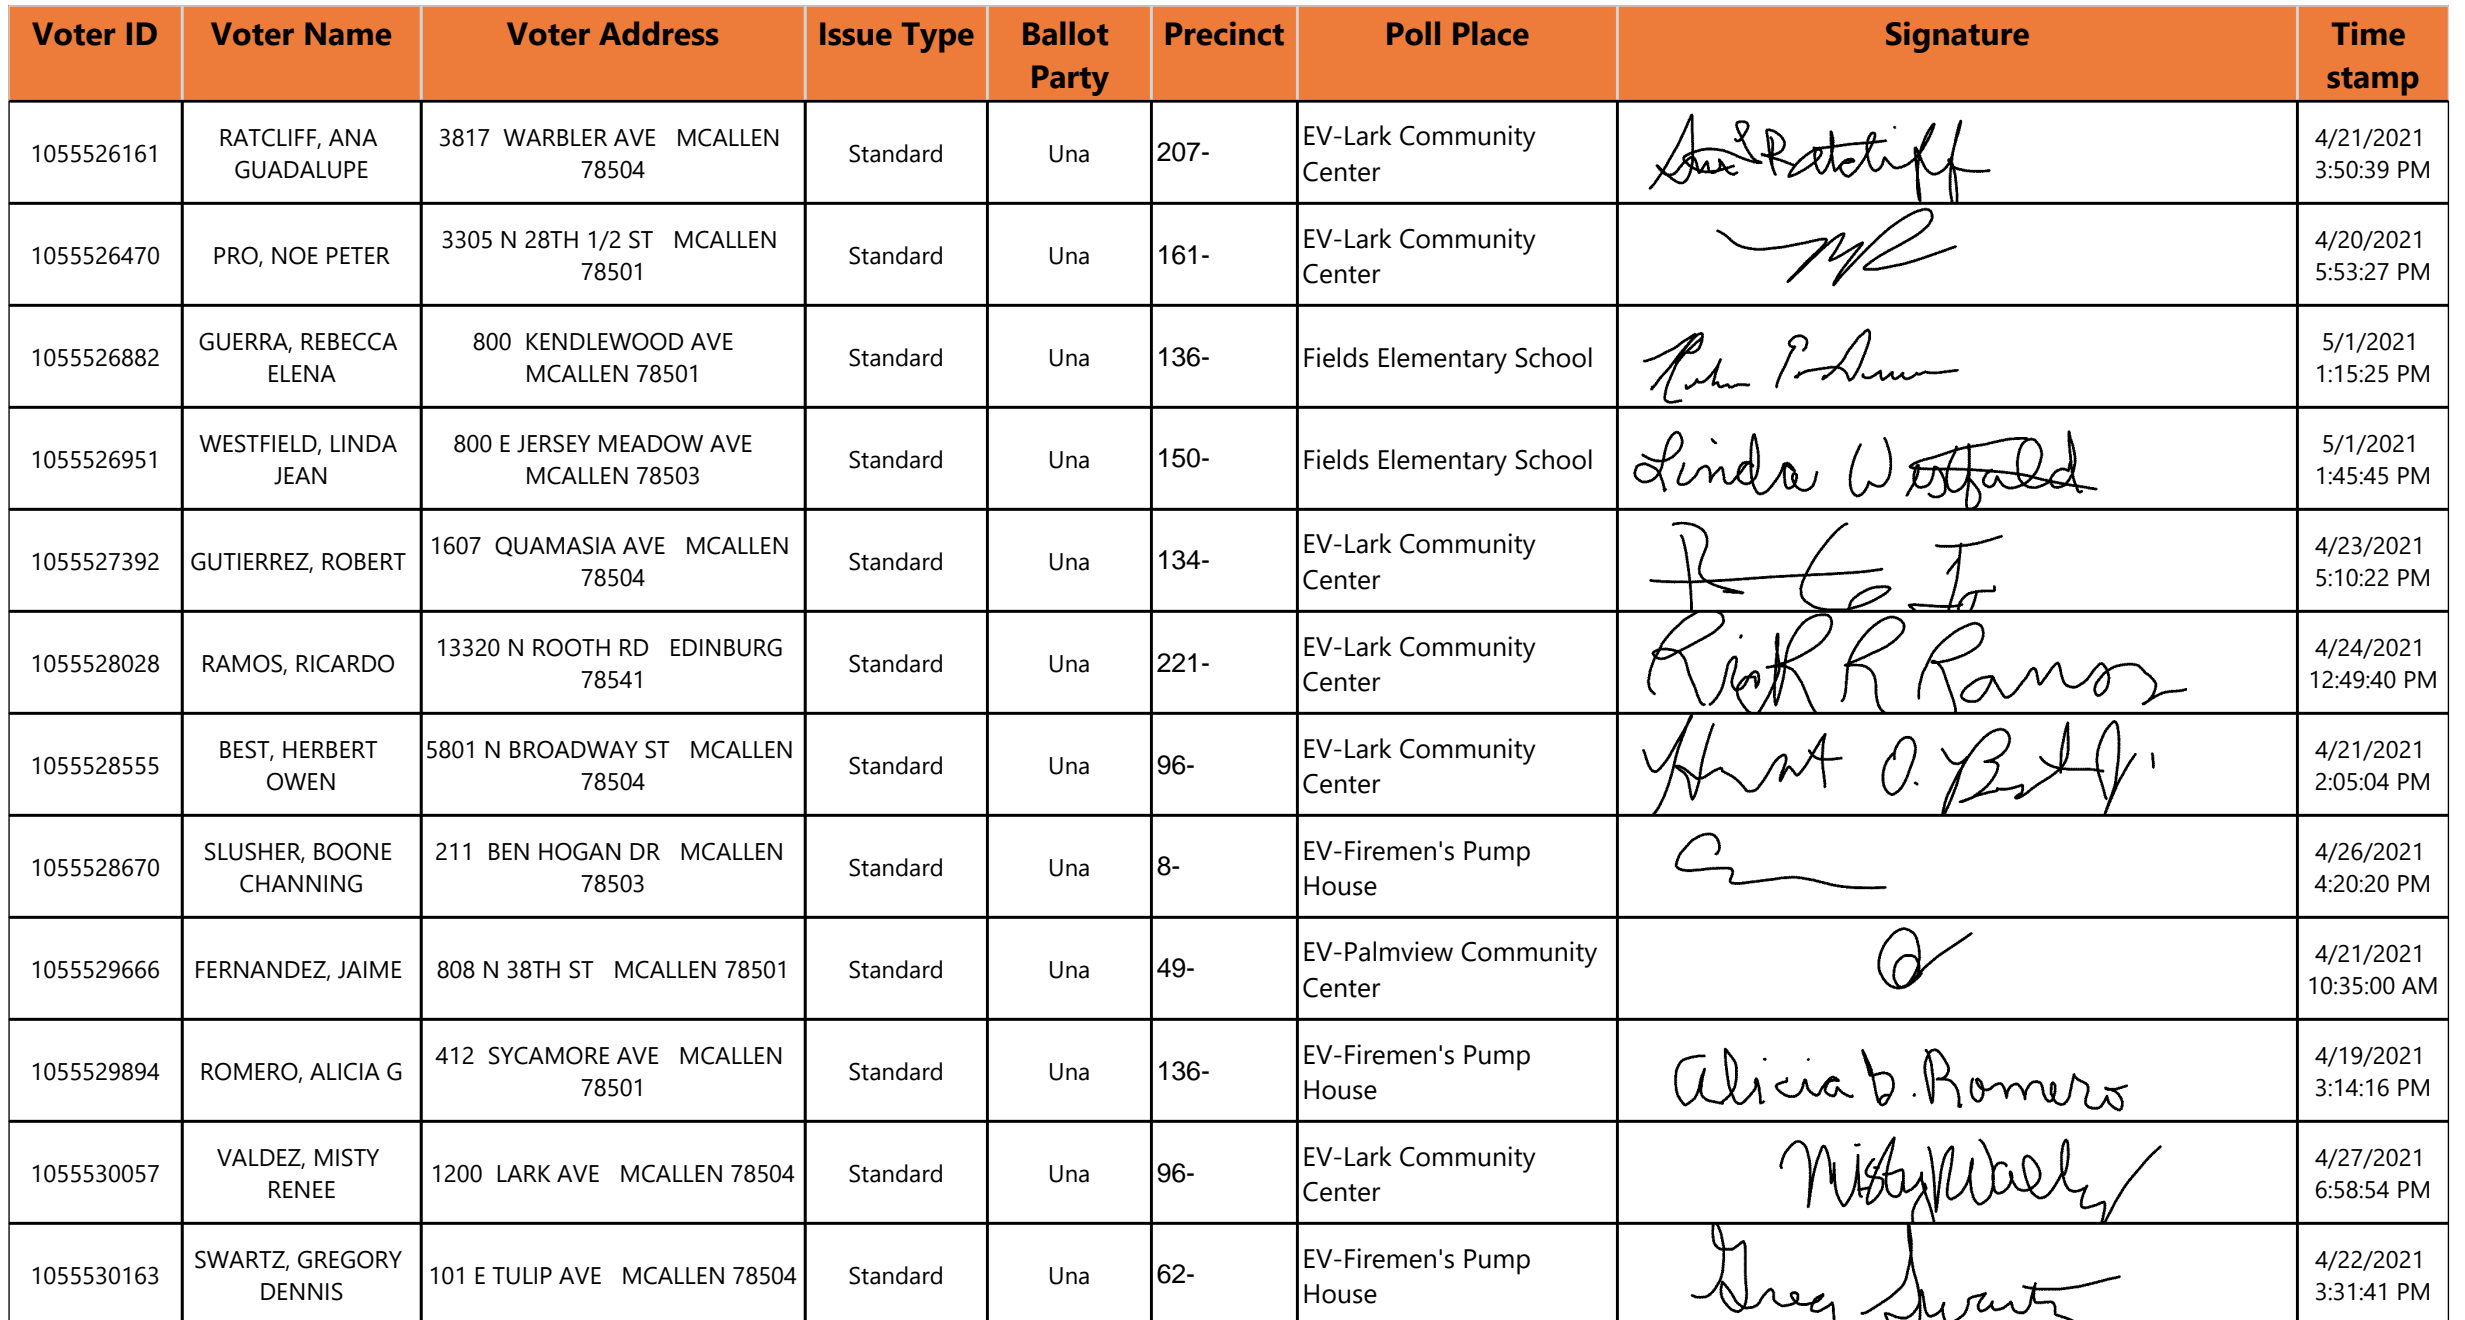 Voter ID Voter Name Voter Address Issue Type Ballot Party Precinct Poll Place Signature Time stamp
1055526161 RATCLIFF, ANA GUADALUPE 3817 WARBLER AVE MCALLEN 78504 Standard Una 207- EV-Lark Community Center Ana Ratcliff 4/21/2021 3:50:39 PM
1055526470 PRO, NOE PETER 3305 N 28TH 1/2 ST MCALLEN 78501 Standard Una 161- EV-Lark Community Center 4/20/2021 5:53:27 PM
1055526882 GUERRA, REBECCA ELENA 800 KENDLEWOOD AVE MCALLEN 78501 Standard Una 136- Fields Elementary School 5/1/2021 1:15:25 PM
1055526951 WESTFIELD, LINDA JEAN 800 E JERSEY MEADOW AVE MCALLEN 78503 Standard Una 150- Fields Elementary School Linda Westfield 5/1/2021 1:45:45 PM
1055527392 GUTIERREZ, ROBERT 1607 QUAMASIA AVE MCALLEN 78504 Standard Una 134- EV-Lark Community Center 4/23/2021 5:10:22 PM
1055528028 RAMOS, RICARDO 13320 N ROOTH RD EDINBURG 78541 Standard Una 221- EV-Lark Community Center Rick R Ramos 4/24/2021 12:49:40 PM
1055528555 BEST, HERBERT OWEN 5801 N BROADWAY ST MCALLEN 78504 Standard Una 96- EV-Lark Community Center O. Best Jr 4/21/2021 2:05:04 PM
1055528670 SLUSHER, BOONE CHANNING 211 BEN HOGAN DR MCALLEN 78503 Standard Una 8- EV-Firemen's Pump House 4/26/2021 4:20:20 PM
1055529666 FERNANDEZ, JAIME 808 N 38TH ST MCALLEN 78501 Standard Una 49- EV-Palmview Community Center 4/21/2021 10:35:00 AM
1055529894 ROMERO, ALICIA G 412 SYCAMORE AVE MCALLEN 78501 Standard Una 136- EV-Firemen's Pump House Alicia G. Romero 4/19/2021 3:14:16 PM
1055530057 VALDEZ, MISTY RENEE 1200 LARK AVE MCALLEN 78504 Standard Una 96- EV-Lark Community Center Misty 4/27/2021 6:58:54 PM
1055530163 SWARTZ, GREGORY DENNIS 101 E TULIP AVE MCALLEN 78504 Standard Una 62- EV-Firemen's Pump House Greg Swartz 4/22/2021 3:31:41 PM